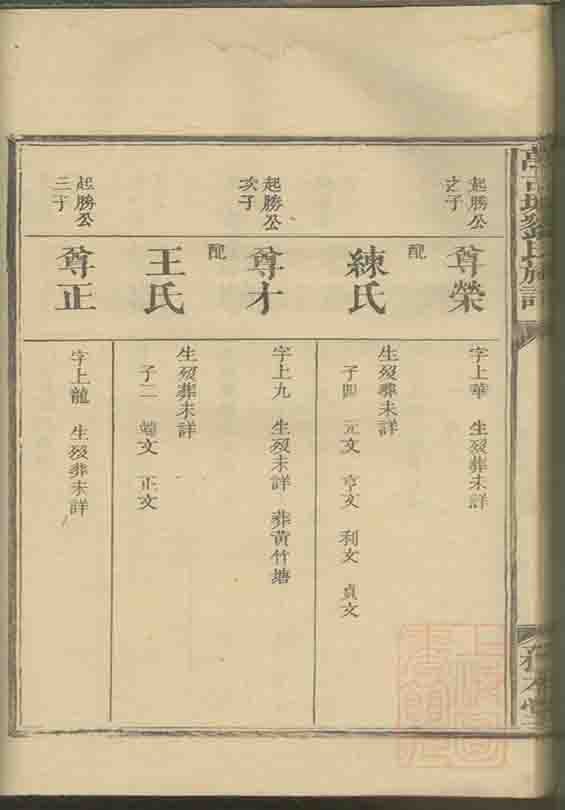 起勝公
之子
尊榮
字上華 生歿葬未詳
配
練氏
生歿葬未詳
子四 元文 亨文 利文 貞文
起勝公
次子
尊才
字上九 生歿未詳 葬黃竹塘
配
王氏
生歿葬未詳
子二 端文 正文
起勝公
三子
尊正
字上龍 生歿葬未詳